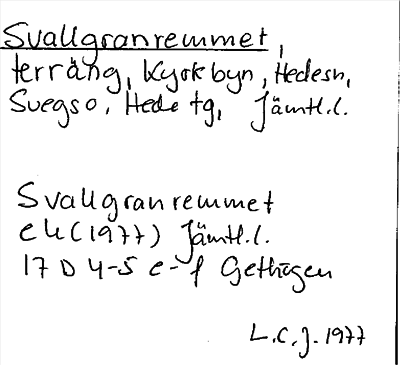 Svallgranremmet,
terräng, Kyrkbyn, Hedesn,
Svegs o. Hede tg, Jämtl.l.
Svallgranremmet
ek (1977) Jämtl.l.
17 D 4-5 e-f Gethågen
L.C.J. 1977